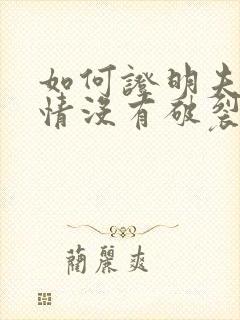 如何證明夫
情沒有破裂
蘭麗爽